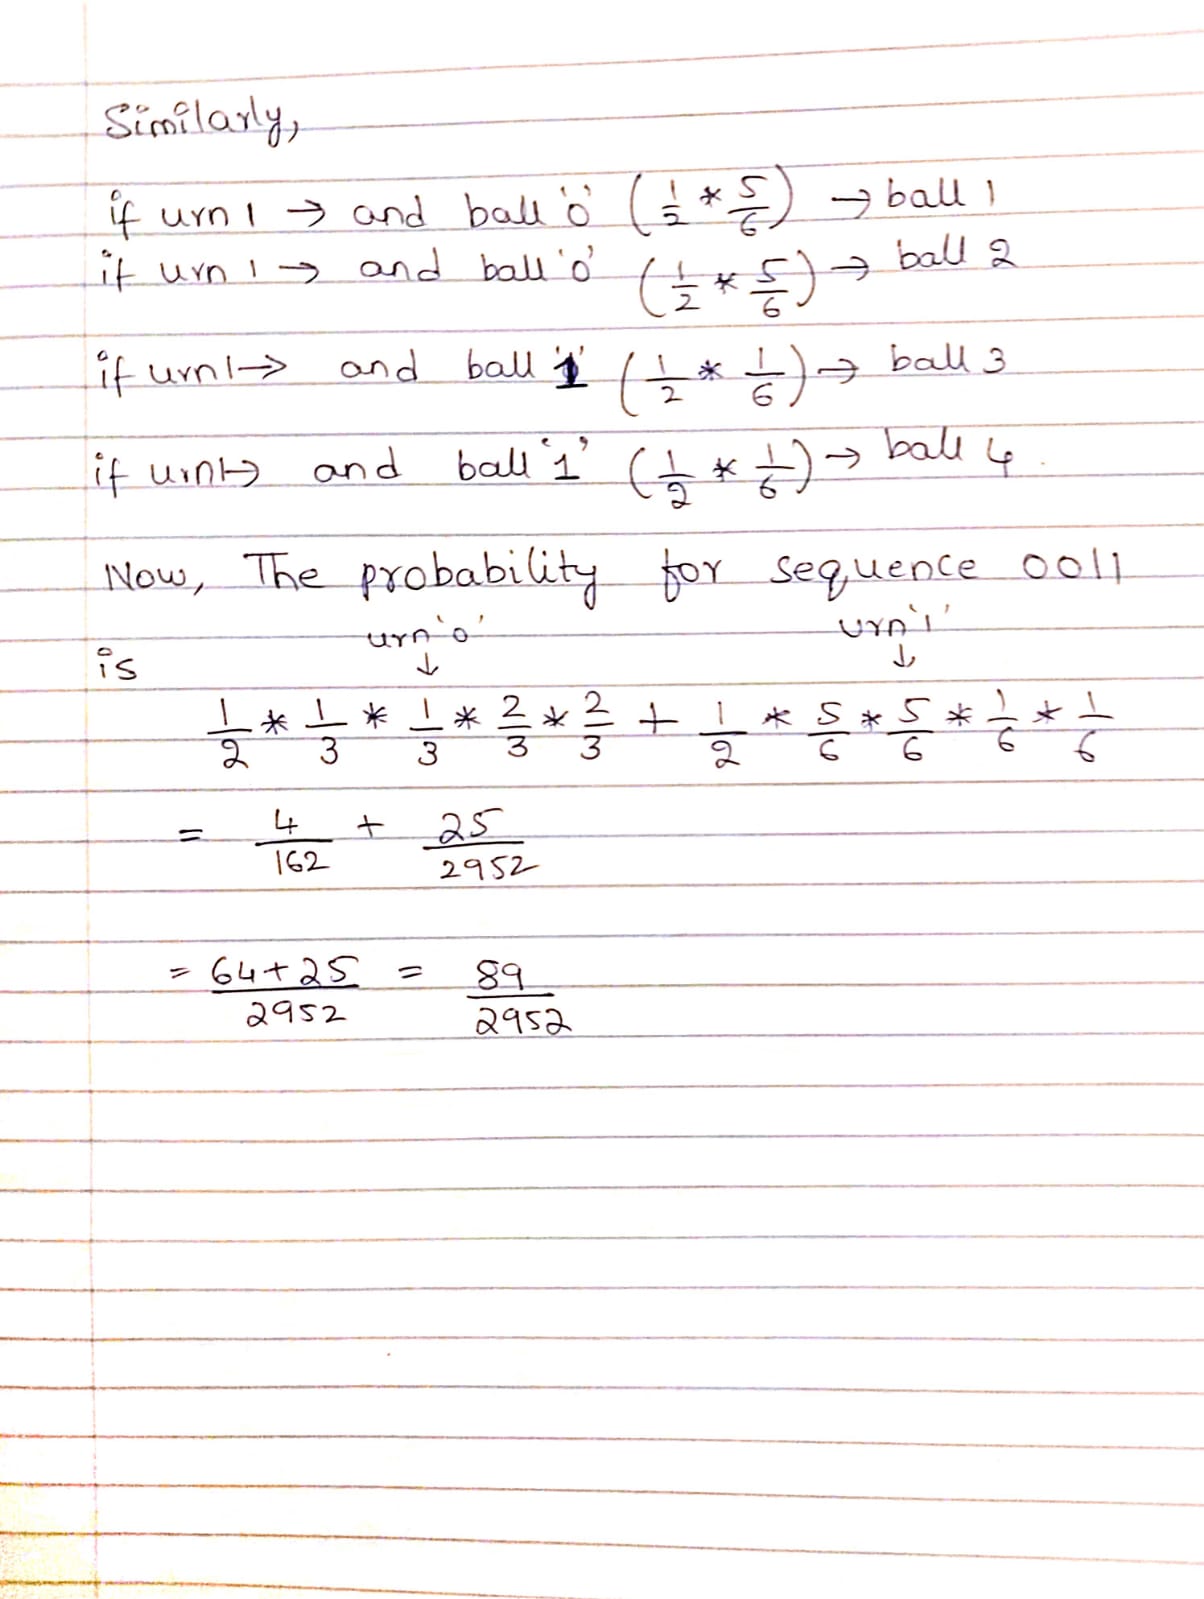 Similarly,
if urn 1 → and ball '0' (1/2 * 5/6) → ball 1
if urn 1 → and ball '0' (1/2 * 5/6) → ball 2
if urn 1 → and ball '1' (1/2 * 1/6) → ball 3
if urn 1 → and ball '1' (1/2 * 1/6) → ball 4.
Now, The probability for sequence 0011
urn '0' urn '1'
is ↓ ↓
1/2 * 1/3 * 1/3 * 2/3 * 2/3 + 1/2 * 5/6 * 5/6 * 1/6 * 1/6
= 4/162 + 25/2952
= 64+25/2952 = 89/2952